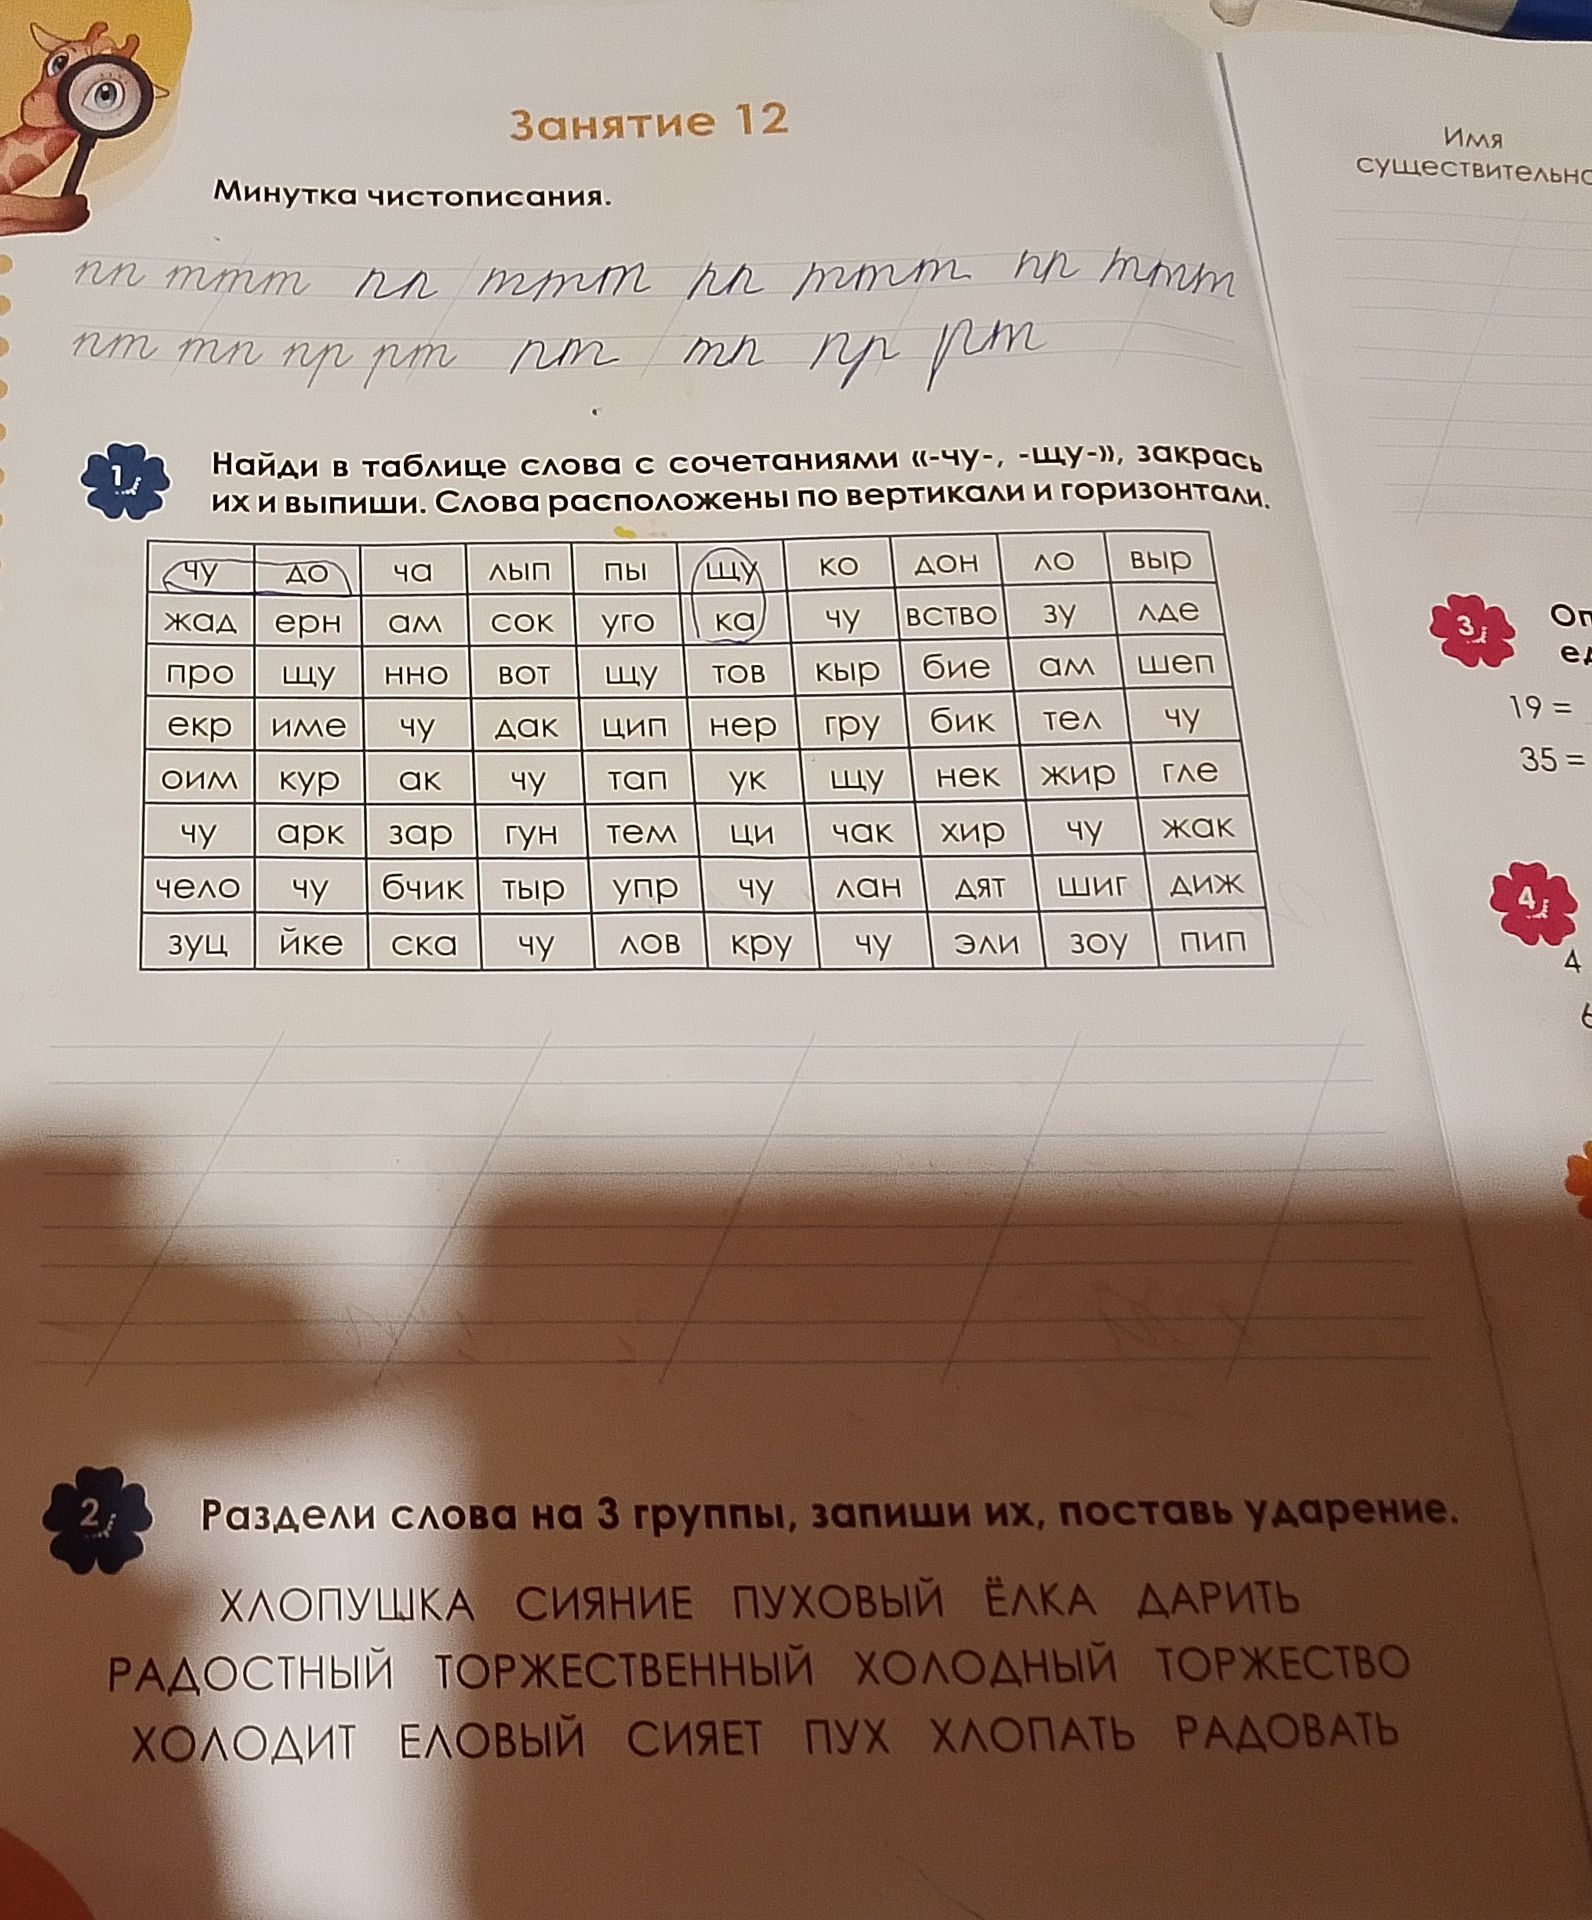 Занятие 12
Минутка чистописания.
пп ттт пп ттт пп ттт пп ттт
пт тп пр рт пт тп пр рт
1 Найди в таблице слова с сочетаниями «-чу-, -щу-», закрась
их и выпиши. Слова расположены по вертикали и горизонтали.
чу до ча лып пы щу ко дон ло выр
жад ерн ам сок уго ка чу вство зу лде
про щу нно вот щу тов кыр бие ам шеп
екр име чу дак цип нер гру бик тел чу
оим кур ак чу тап ук щу нек жир гле
чу арк зар гун тем ци чак хир чу жак
чело чу бчик тыр упр чу лан дят шиг диж
зущ йке ска чу лов кру чу эли зоу пип
2 Раздели слова на 3 группы, запиши их, поставь ударение.
ХЛОПУШКА СИЯНИЕ ПУХОВЫЙ ЁЛКА ДАРИТЬ
РАДОСТНЫЙ ТОРЖЕСТВЕННЫЙ ХОЛОДНЫЙ ТОРЖЕСТВО
ХОЛОДИТ ЕЛОВЫЙ СИЯЕТ ПУХ ХЛОПАТЬ РАДОВАТЬ
Имя
существительно
3
19 =
35 =
4
4